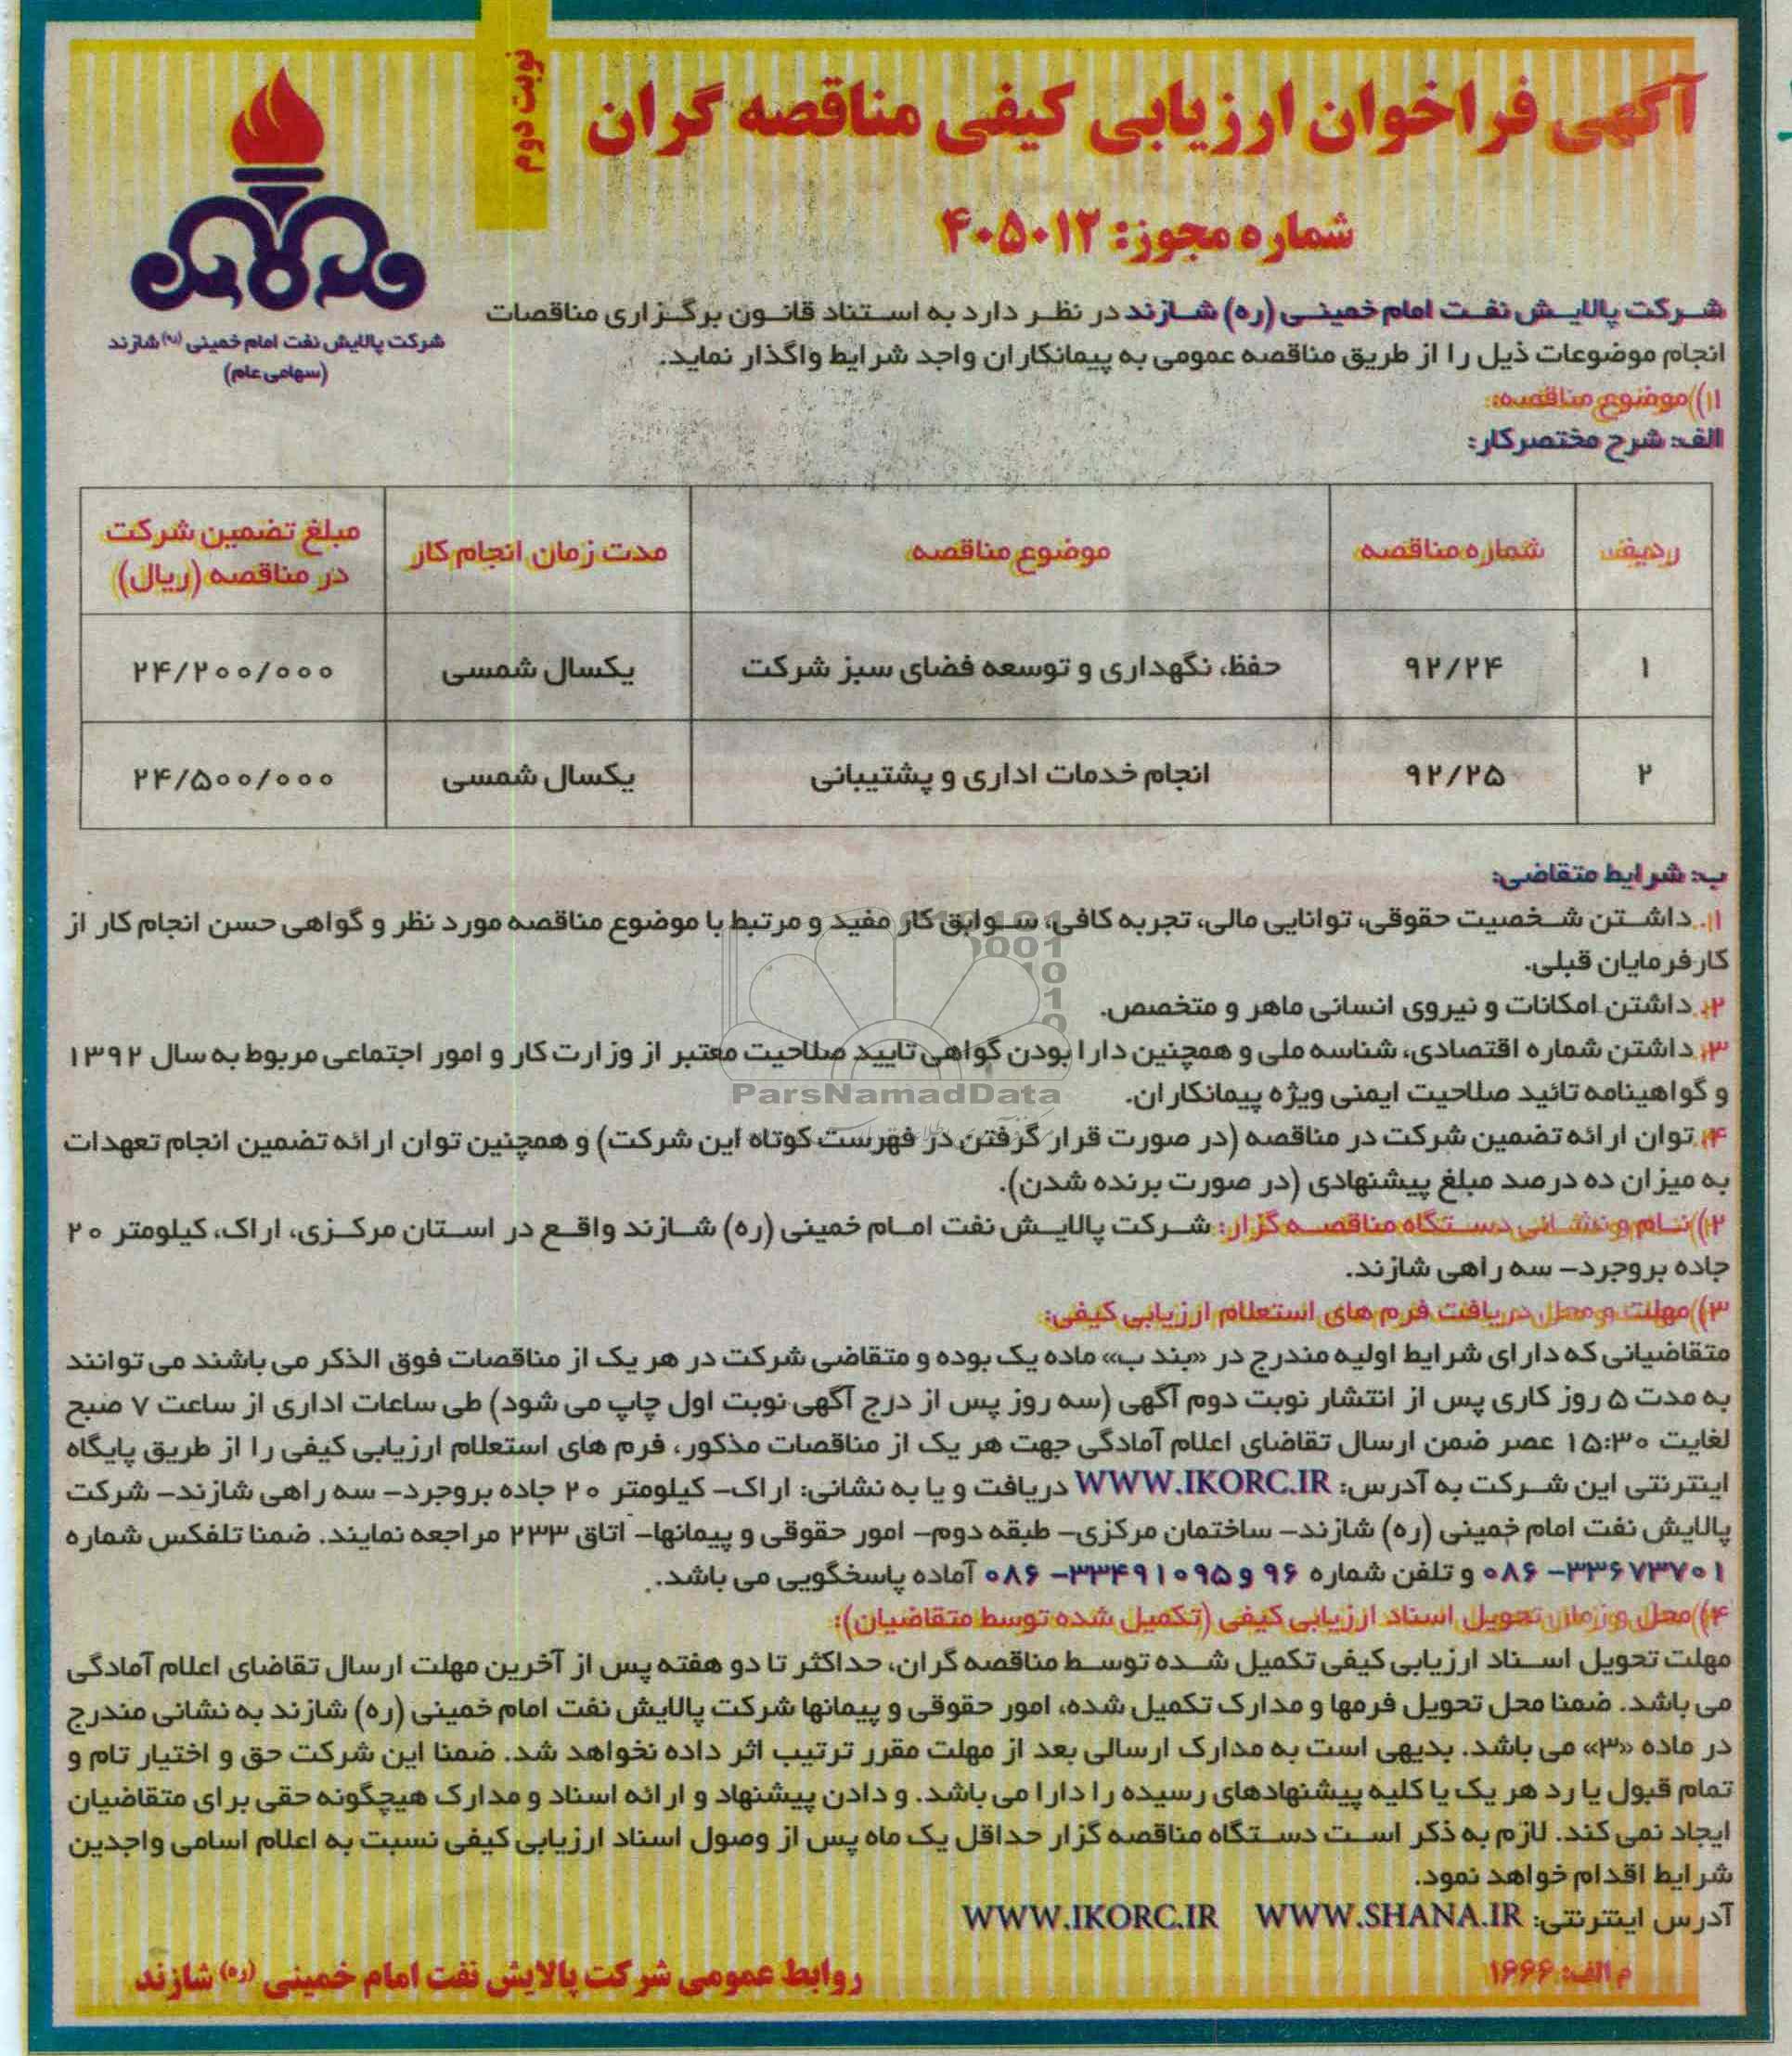 نوبت دوم
آگهی فراخوان ارزیابی کیفی مناقصه گران
شماره مجوز: ۴۰۵۰۱۲
شرکت پالایش نفت امام خمینی (ره) شازند
(سهامی عام)
شرکت پالایش نفت امام خمینی (ره) شازند در نظر دارد به استناد قانون برگزاری مناقصات
انجام موضوعات ذیل را از طریق مناقصه عمومی به پیمانکاران واجد شرایط واگذار نماید.
۱) موضوع مناقصه:
الف: شرح مختصر کار:
ردیف شماره مناقصه موضوع مناقصه مدت زمان انجام کار مبلغ تضمین شرکت در مناقصه (ریال)
۱ ۹۲/۲۴ حفظ، نگهداری و توسعه فضای سبز شرکت یکسال شمسی ۲۴/۲۰۰/۰۰۰
۲ ۹۲/۲۵ انجام خدمات اداری و پشتیبانی یکسال شمسی ۲۴/۵۰۰/۰۰۰
ب: شرایط متقاضی:
۱. داشتن شخصیت حقوقی، توانایی مالی، تجربه کافی، سوابق کار مفید و مرتبط با موضوع مناقصه مورد نظر و گواهی حسن انجام کار از
کارفرمایان قبلی.
۲. داشتن امکانات و نیروی انسانی ماهر و متخصص.
۳. داشتن شماره اقتصادی، شناسه ملی و همچنین دارا بودن گواهی تایید صلاحیت معتبر از وزارت کار و امور اجتماعی مربوط به سال ۱۳۹۲
و گواهینامه تائید صلاحیت ایمنی ویژه پیمانکاران.
ParsNamadData
۴. توان ارائه تضمین شرکت در مناقصه (در صورت قرار گرفتن در فهرست کوتاه این شرکت) و همچنین توان ارائه تضمین انجام تعهدات
به میزان ده درصد مبلغ پیشنهادی (در صورت برنده شدن).
۲) نام و نشانی دستگاه مناقصه گزار: شرکت پالایش نفت امام خمینی (ره) شازند واقع در استان مرکزی، اراک، کیلومتر ۲۰
جاده بروجرد- سه راهی شازند.
۳) مهلت و محل دریافت فرم های استعلام ارزیابی کیفی:
متقاضیانی که دارای شرایط اولیه مندرج در «بند ب» ماده یک بوده و متقاضی شرکت در هر یک از مناقصات فوق الذکر می باشند می توانند
به مدت ۵ روز کاری پس از انتشار نوبت دوم آگهی (سه روز پس از درج آگهی نوبت اول چاپ می شود) طی ساعات اداری از ساعت ۷ صبح
لغایت ۱۵:۳۰ عصر ضمن ارسال تقاضای اعلام آمادگی جهت هر یک از مناقصات مذکور، فرم های استعلام ارزیابی کیفی را از طریق پایگاه
اینترنتی این شرکت به آدرس: WWW.IKORC.IR دریافت و یا به نشانی: اراک- کیلومتر ۲۰ جاده بروجرد- سه راهی شازند- شرکت
پالایش نفت امام خمینی (ره) شازند- ساختمان مرکزی- طبقه دوم- امور حقوقی و پیمانها- اتاق ۲۳۳ مراجعه نمایند. ضمنا تلفکس شماره
۳۳۶۷۳۷۰۱-۰۸۶ و تلفن شماره ۹۶ و ۳۳۴۹۱۰۹۵-۰۸۶ آماده پاسخگویی می باشد.
۴) محل و زمان تحویل اسناد ارزیابی کیفی (تکمیل شده توسط متقاضیان):
مهلت تحویل اسناد ارزیابی کیفی تکمیل شده توسط مناقصه گران، حداکثر تا دو هفته پس از آخرین مهلت ارسال تقاضای اعلام آمادگی
می باشد. ضمنا محل تحویل فرمها و مدارک تکمیل شده، امور حقوقی و پیمانها شرکت پالایش نفت امام خمینی (ره) شازند به نشانی مندرج
در ماده «۳» می باشد. بدیهی است به مدارک ارسالی بعد از مهلت مقرر ترتیب اثر داده نخواهد شد. ضمنا این شرکت حق و اختیار تام و
تمام قبول یا رد هر یک یا کلیه پیشنهادهای رسیده را دارا می باشد. و دادن پیشنهاد و ارائه اسناد و مدارک هیچگونه حقی برای متقاضیان
ایجاد نمی کند. لازم به ذکر است دستگاه مناقصه گزار حداقل یک ماه پس از وصول اسناد ارزیابی کیفی نسبت به اعلام اسامی واجدین
شرایط اقدام خواهد نمود.
آدرس اینترنتی: WWW.IKORC.IR WWW.SHANA.IR
م الف: ۱۶۶۶
روابط عمومی شرکت پالایش نفت امام خمینی (ره) شازند